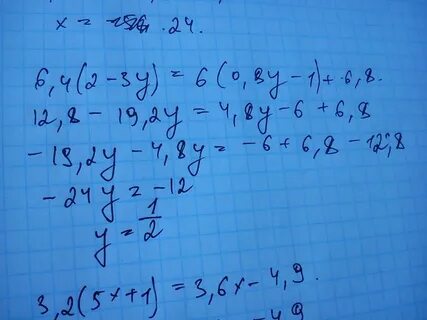 x = 24.
6,4(2-3y) = 6(0,8y-1)+6,8.
12,8 - 19,2y = 4,8y-6 + 6,8
-19,2y - 4,8y = -6+6,8 - 12,8
-24y = -12
y = 1/2
3,2(5x+1) = 3,6x-4,9.
4,9